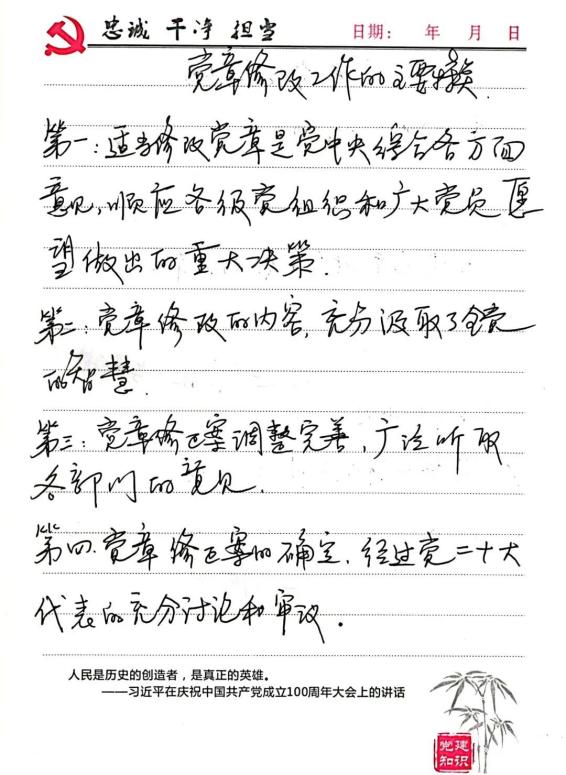 忠诚 干净 担当
日期： 年 月 日
党章修改工作的主要
第一：适当修改党章是党中央综合各方面
意见，顺应各级党组织和广大党员愿
望做出的重大决策.
第二：党章修改的内容，充分汲取了全党
的智慧.
第三：党章修正案调整完善，广泛听取
各部门的意见.
第四.党章修正案的确定，经过党二十大
代表的充分讨论和审议.
人民是历史的创造者，是真正的英雄。
——习近平在庆祝中国共产党成立100周年大会上的讲话
党建
知识